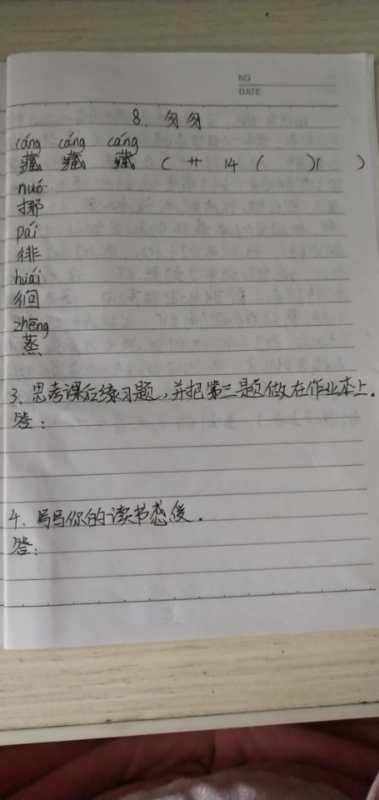 NO
DATE
8. 匆匆
cáng cáng cáng
藏 藏 藏 ( 艹 14 ( )( )
nuó
挪
pái
徘
huái
徊
zhēng
蒸
3. 思考课后练习题,并把第二题做在作业本上。
答:
4. 写写你的读书感后.
答: